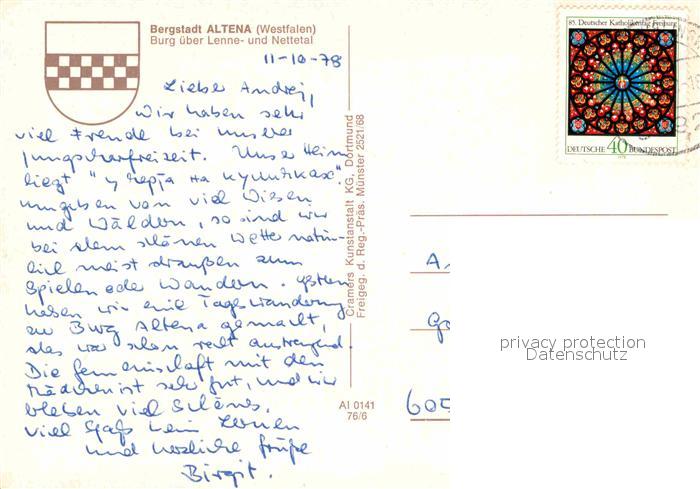 Bergstadt ALTENA (Westfalen)
Burg über Lenne- und Nettetal
11-10-78
Lieber Andrej,
Wir haben sehr
viel Freude bei unserer
Jungscharfreizeit. Unser Heim
liegt "у черта на куличках".
umgeben von viel Wiesen
und Wäldern, so sind wir
bei dem schönen Wetter natür-
lich meist draußen zum
Spielen oder Wandern. Gestern
haben wir eine Tageswanderung
zur Burg Altena gemacht,
das war schon recht anstrengend.
Die Gemeinschaft mit den
Mädchen ist sehr gut, und wir
erleben viel Schönes.
Viel Spaß beim Lernen
und herzliche Grüße
Birgit.
Cramers Kunstanstalt KG, Dortmund
Freigeg. d. Reg.-Präs. Münster 2521/68
AI 0141
76/6
85. Deutscher Katholikentag Freiburg
DEUTSCHE 40 BUNDESPOST
1978
A
Go
605
privacy protection
Datenschutz